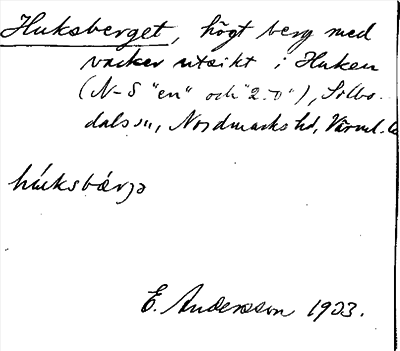 Huksberget, högt berg med
vacker utsikt i Huken
(N-S "en" och "2.0"), Silbo-
dals sn, Nordmarks hd, Värml. l.
húksbárjə
E. Andersson 1933.